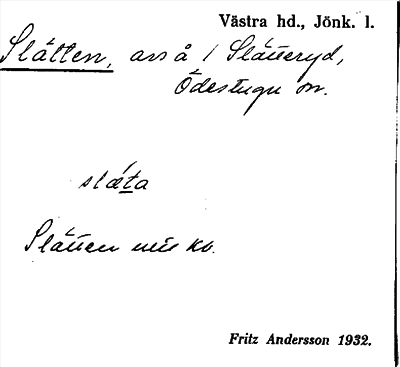 Västra hd., Jönk. l.
Slätten, avs å / Slätteryd,
Ödestugu sn.
slǽta
Slätten uie ko.
Fritz Andersson 1932.